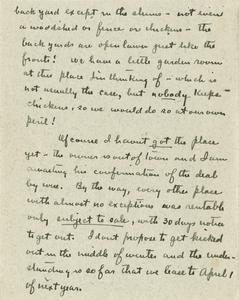 back yard except in the slums - not even
a woodshed or fence or chickens - the
back yards are open lawn just like the
fronts! We have a little garden room
at this place I'm thinking of - which is
not usually the case, but nobody keeps
chickens, so we would do so at our own
peril!
Of course I haven't got the place
yet - the owner is out of town and I am
awaiting his confirmation of the deal
by wire. By the way, every other place
with almost no exceptions was rentable
only subject to sale, with 30 days notice
to get out. I don't propose to get kicked
out in the middle of winter and the under-
standing is so far that we lease to April 1
of next year.